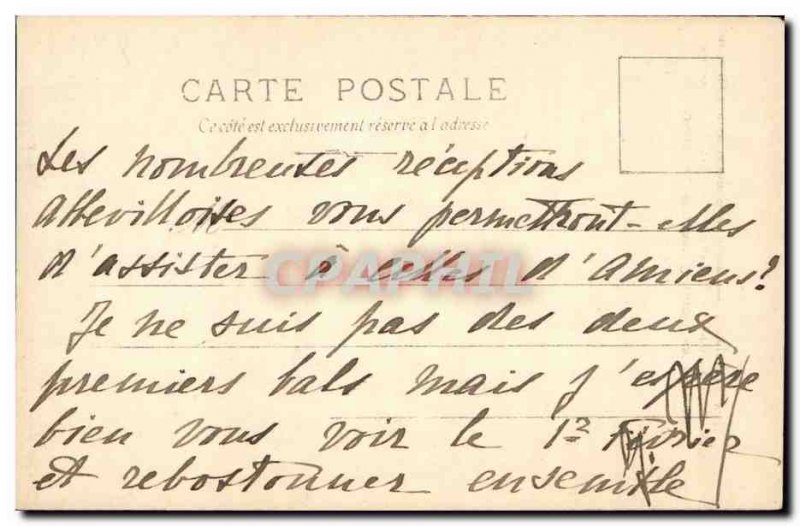 CARTE POSTALE
Ce côté est exclusivement réservé à l'adresse
Les nombreuses réceptions
Abbevilloises vous permettront-elles
d'assister à celles d'Amiens?
Je ne suis pas des deux
premiers bals mais j'espère
bien vous voir le 12 février
et rebostonner ensemble
CPAPHIL